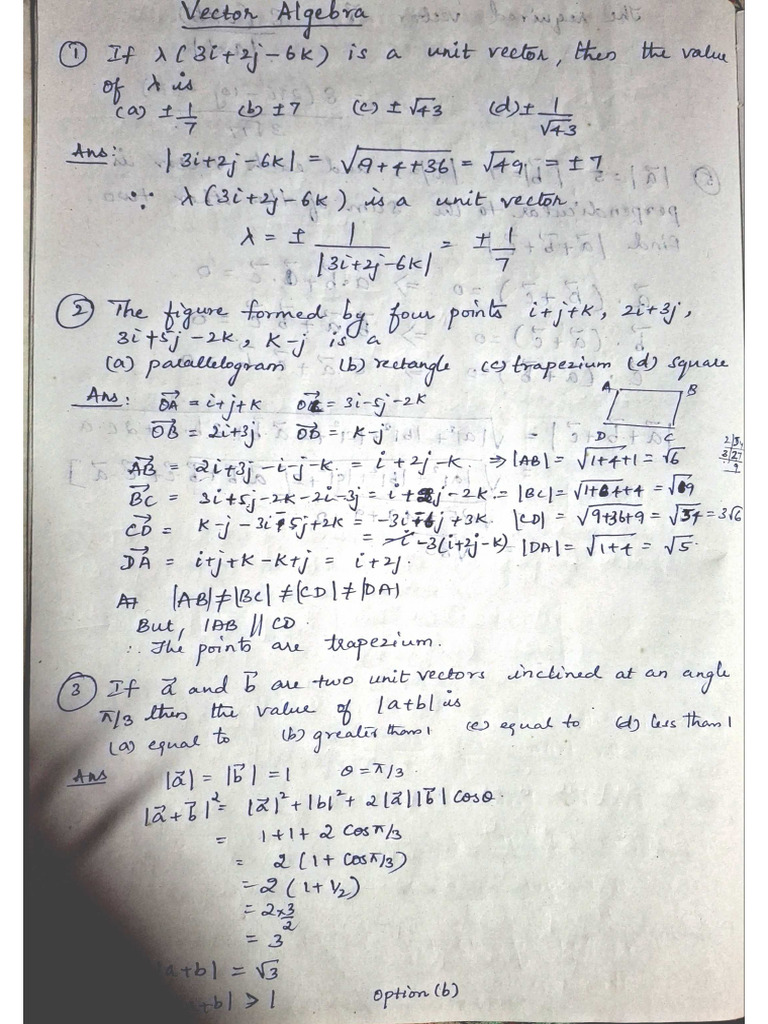 Vector Algebra
① If λ(3i+2j-6k) is a unit vector, then the value
of λ is
(a) ±1/7 (b) ±7 (c) ±√43 (d) ± 1/√43
Ans: |3i+2j-6k| = √9+4+36 = √49 = ±7
∵ λ(3i+2j-6k) is a unit vector
λ = ± 1/|3i+2j-6k| = ± 1/7
② The figure formed by four points i+j+k, 2i+3j,
3i+5j-2k, k-j is a
(a) parallelogram (b) rectangle (c) trapezium (d) square
Ans: OA = i+j+k OC = 3i-5j-2k
OB = 2i+3j OD = k-j
A B
D C
AB = 2i+3j-i-j-k = i+2j-k ⇒ |AB| = √1+4+1 = √6
BC = 3i+5j-2k-2i-3j = i+2j-2k = |BC| = √1+4+4 = √9
CD = k-j-3i-5j+2k = -3i-6j+3k |CD| = √9+36+9 = √54 = 3√6
= -3(i+2j-k)
DA = i+j+k-k+j = i+2j. |DA| = √1+4 = √5.
|AB| ≠ |BC| ≠ |CD| ≠ |DA|
But, |AB || CD
∴ The points are trapezium.
③ If a⃗ and b⃗ are two unit vectors inclined at an angle
π/3 then the value of |a+b| is
(a) equal to (b) greater than 1 (c) equal to (d) less than 1
Ans |a⃗| = |b⃗| = 1 θ = π/3.
|a⃗+b⃗|² = |a⃗|² + |b|² + 2|a⃗||b⃗| cosθ.
= 1+1+2 cosπ/3
= 2(1+cosπ/3)
= 2(1+1/2)
= 2×3/2
= 3
|a+b| = √3
+b| > 1 Option (b)